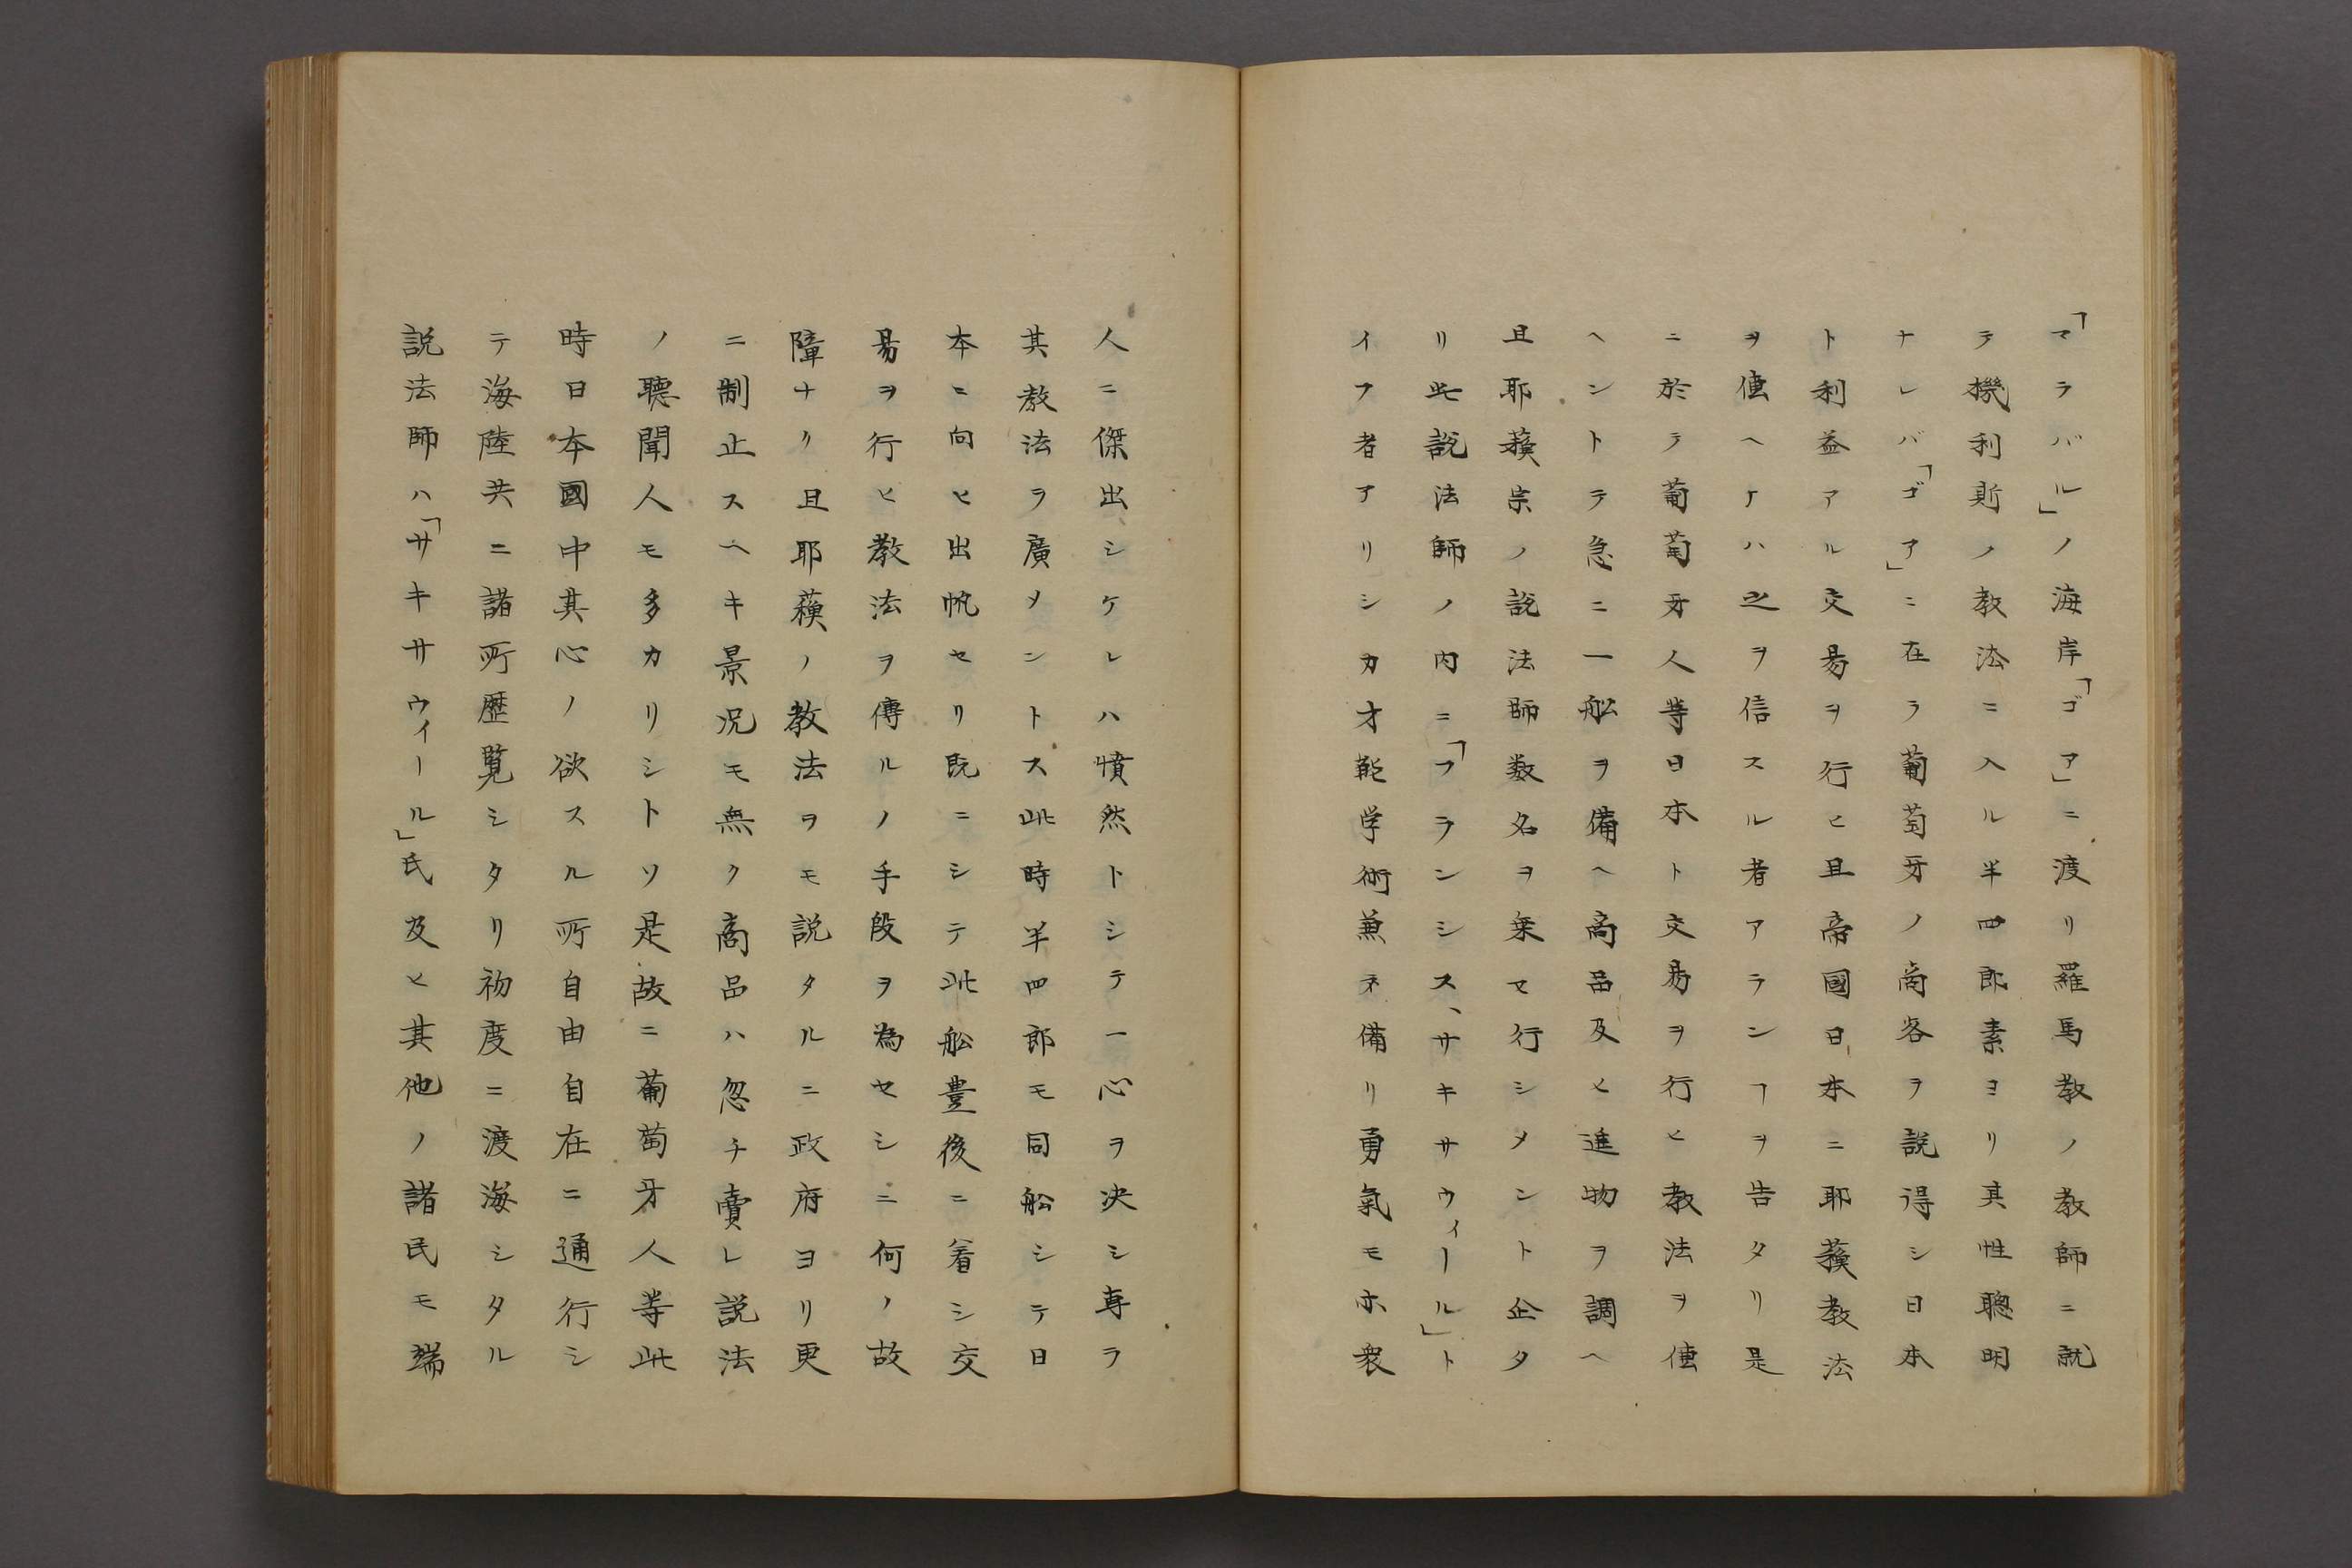 「マラバル」ノ海岸「ゴア」ニ渡リ羅馬教ノ教師ニ就
テ機利斯ノ教法ニ入ル半四郎素ヨリ其性聰明
ナレバ「ゴア」ニ在ラ葡萄牙ノ商客ヲ説得シ日本
ト利益アル交易ヲ行ヒ且帝國日本ニ耶蘓教法
ヲ傳ヘケハ之ヲ信スル者アランヿヲ告タリ是
ニ於テ葡萄牙人等日本ト交易ヲ行ヒ教法ヲ傳
ヘントテ急ニ一舩ヲ備ヘ商品及ヒ進物ヲ調ヘ
且耶蘓宗ノ説法師数名ヲ乗セ行シメント企タ
リ此説法師ノ内ニ「フランシス、サキサウィール」ト
イフ者アリシカ才能学術兼ネ備リ勇氣モ亦衆
人ニ傑出シケレハ憤然トシテ一心ヲ决シ専ラ
其教法ヲ廣メントス此時半四郎モ同舩シテ日
本ニ向ヒ出帆セリ既ニシテ此舩豊後ニ着シ交
易ヲ行ヒ教法ヲ傳ルノ手段ヲ為セシニ何ノ故
障ナリ且耶蘓ノ教法ヲモ説タルニ政府ヨリ更
ニ制止スヘキ景况モ無ク商品ハ忽チ賣レ説法
ノ聴聞人モ多カリシトソ是故ニ葡萄牙人等此
時日本國中其心ノ欲スル所自由自在ニ通行シ
テ海陸共ニ諸所歴覧シタリ初度ニ渡海シタル
説法師ハ「サキサウィール」氏及ヒ其他ノ諸民モ端